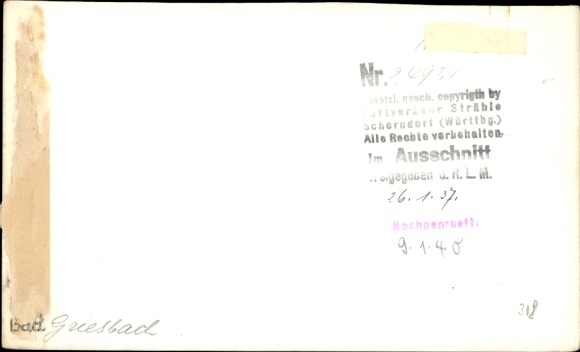 Nr.
gesetzl. gesch. copyrigth by
Luftverkehr Strähle
Schorndorf (Württbg.)
Alle Rechte vorbehalten.
Im Ausschnitt
freigegeben d. R. L. M.
26. 1. 37.
Nachgeprueft:
9. 1. 40
318
Bad Griesbach